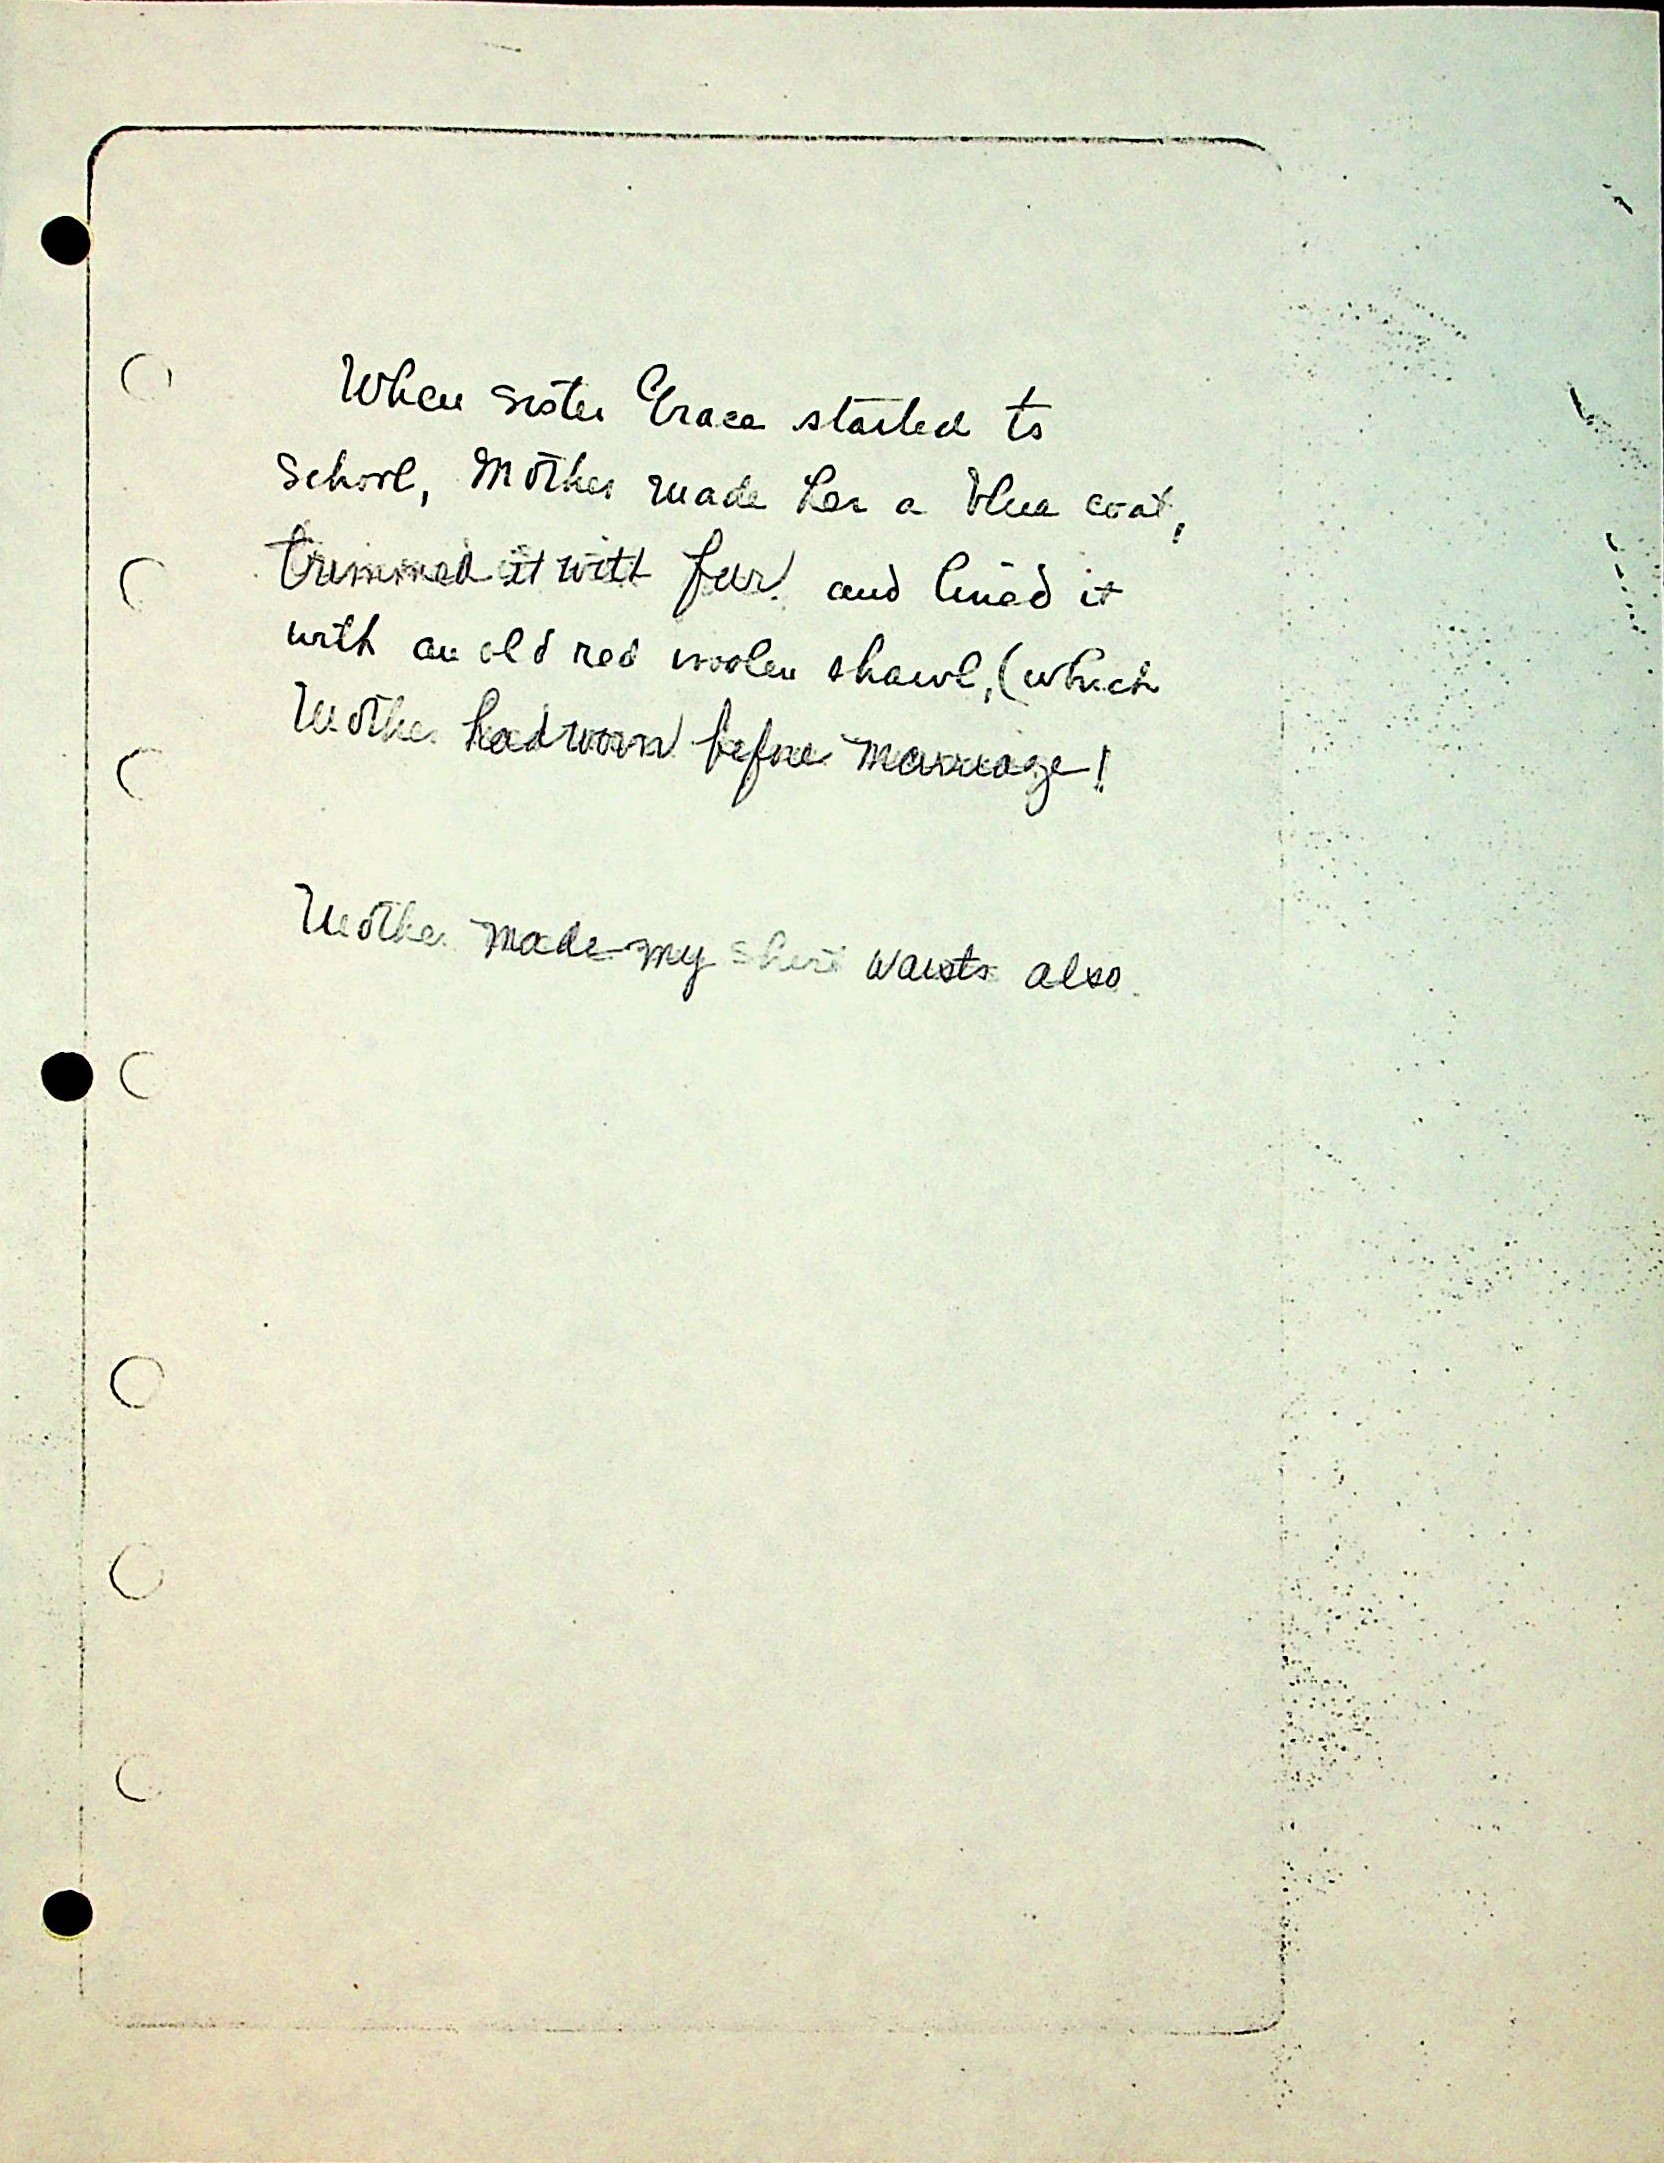 When sister Grace started to
school, Mother made her a blue coat,
trimmed it with fur and lined it
with an old red woolen shawl, (which
Mother had worn before marriage!
Mother made my shirt waists also.